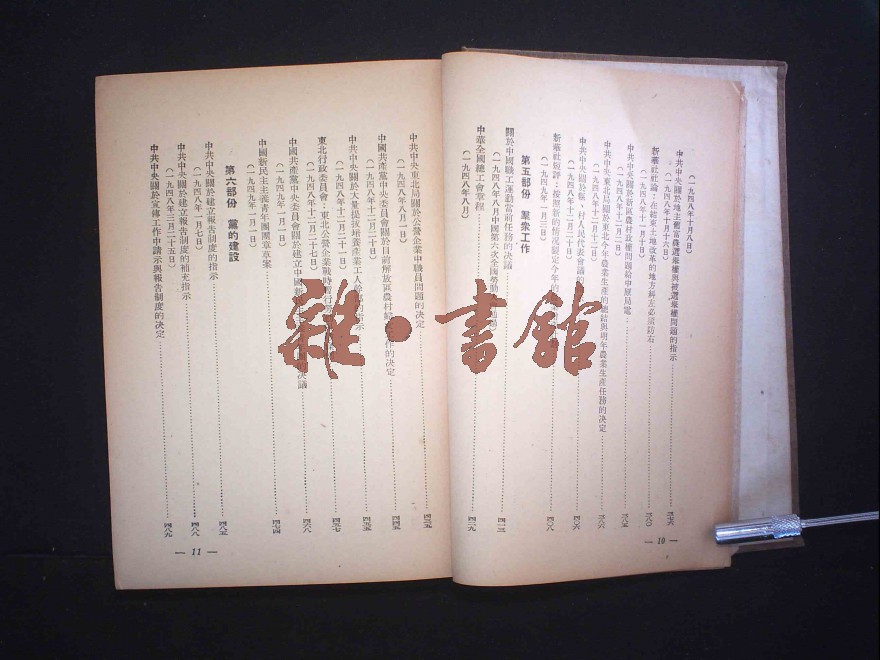 (一九四八年十月八日)
中共中央關於地主舊富農選舉權與被選舉權問題的指示……三七六
(一九四八年十一月十日)
新華社社論:在結束土地改革的地方糾左必須防右……三八〇
(一九四八年十二月二日)
中共中央關於新區農村政權問題給中原局電……三八五
(一九四八年十二月十二日)
中共中央東北局關於東北今年農業生產的總結與明年農業生產任務的決定……三八六
(一九四八年十二月二十日)
中共中央關於縣、村人民代表會議的
(一九四九年一月三日)
新華社短評:按照新的情況製定今年的
第五部份 羣衆工作
關於中國職工運動當前任務的決議……四一三
(一九四八年八月中國第六次全國勞動
中華全國總工會章程……四一九
(一九四八年八月)
— 10 —
中共中央東北局關於公營企業中職員問題的決定……四三五
(一九四八年八月一日)
中國共產黨中央委員會關於目前解放區農村婦 作的決定……四四五
(一九四八年十二月二十日)
中共中央關於大量提拔培養產業工人幹 示
(一九四八年十二月二十一日)
東北行政委員會:東北公營企業戰時暫行
(一九四八年十二月二十七日)
中國共產黨中央委員會關於建立中國新 的決議……四六八
(一九四九年一月一日)
中國新民主主義青年團團章草案……四七四
(一九四九年一月一日)
第六部份 黨的建設
中共中央關於建立報告制度的指示……四八五
(一九四八年一月七日)
中共中央關於建立報告制度的補充指示……四八八
(一九四八年三月二十五日)
中共中央關於宣傳工作中請示與報告制度的決定……四八九
— 11 —
雜·書館